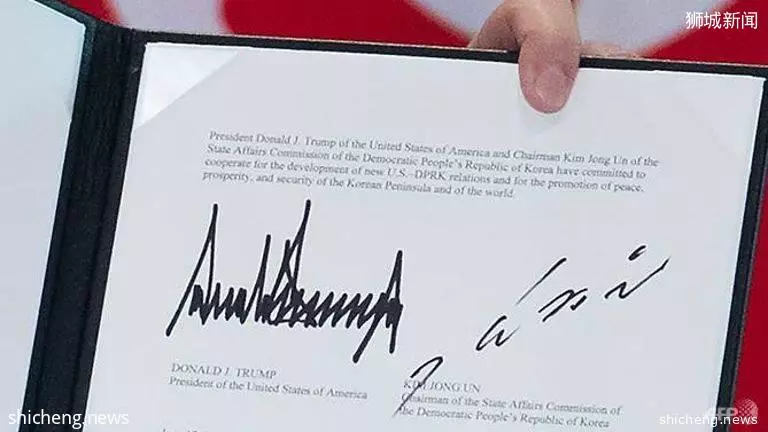 狮城新闻
President Donald J. Trump of the United States of America and Chairman Kim Jong Un of the
State Affairs Commission of the Democratic People's Republic of Korea have committed to
cooperate for the development of new U.S.-DPRK relations and for the promotion of peace,
prosperity, and security of the Korean Peninsula and of the world.
DONALD J. TRUMP
President of the United States of America
KIM JONG UN
Chairman of the State Affairs Commission of
the Democratic People's Republic of Korea
shicheng.news
AFP
shicheng.news